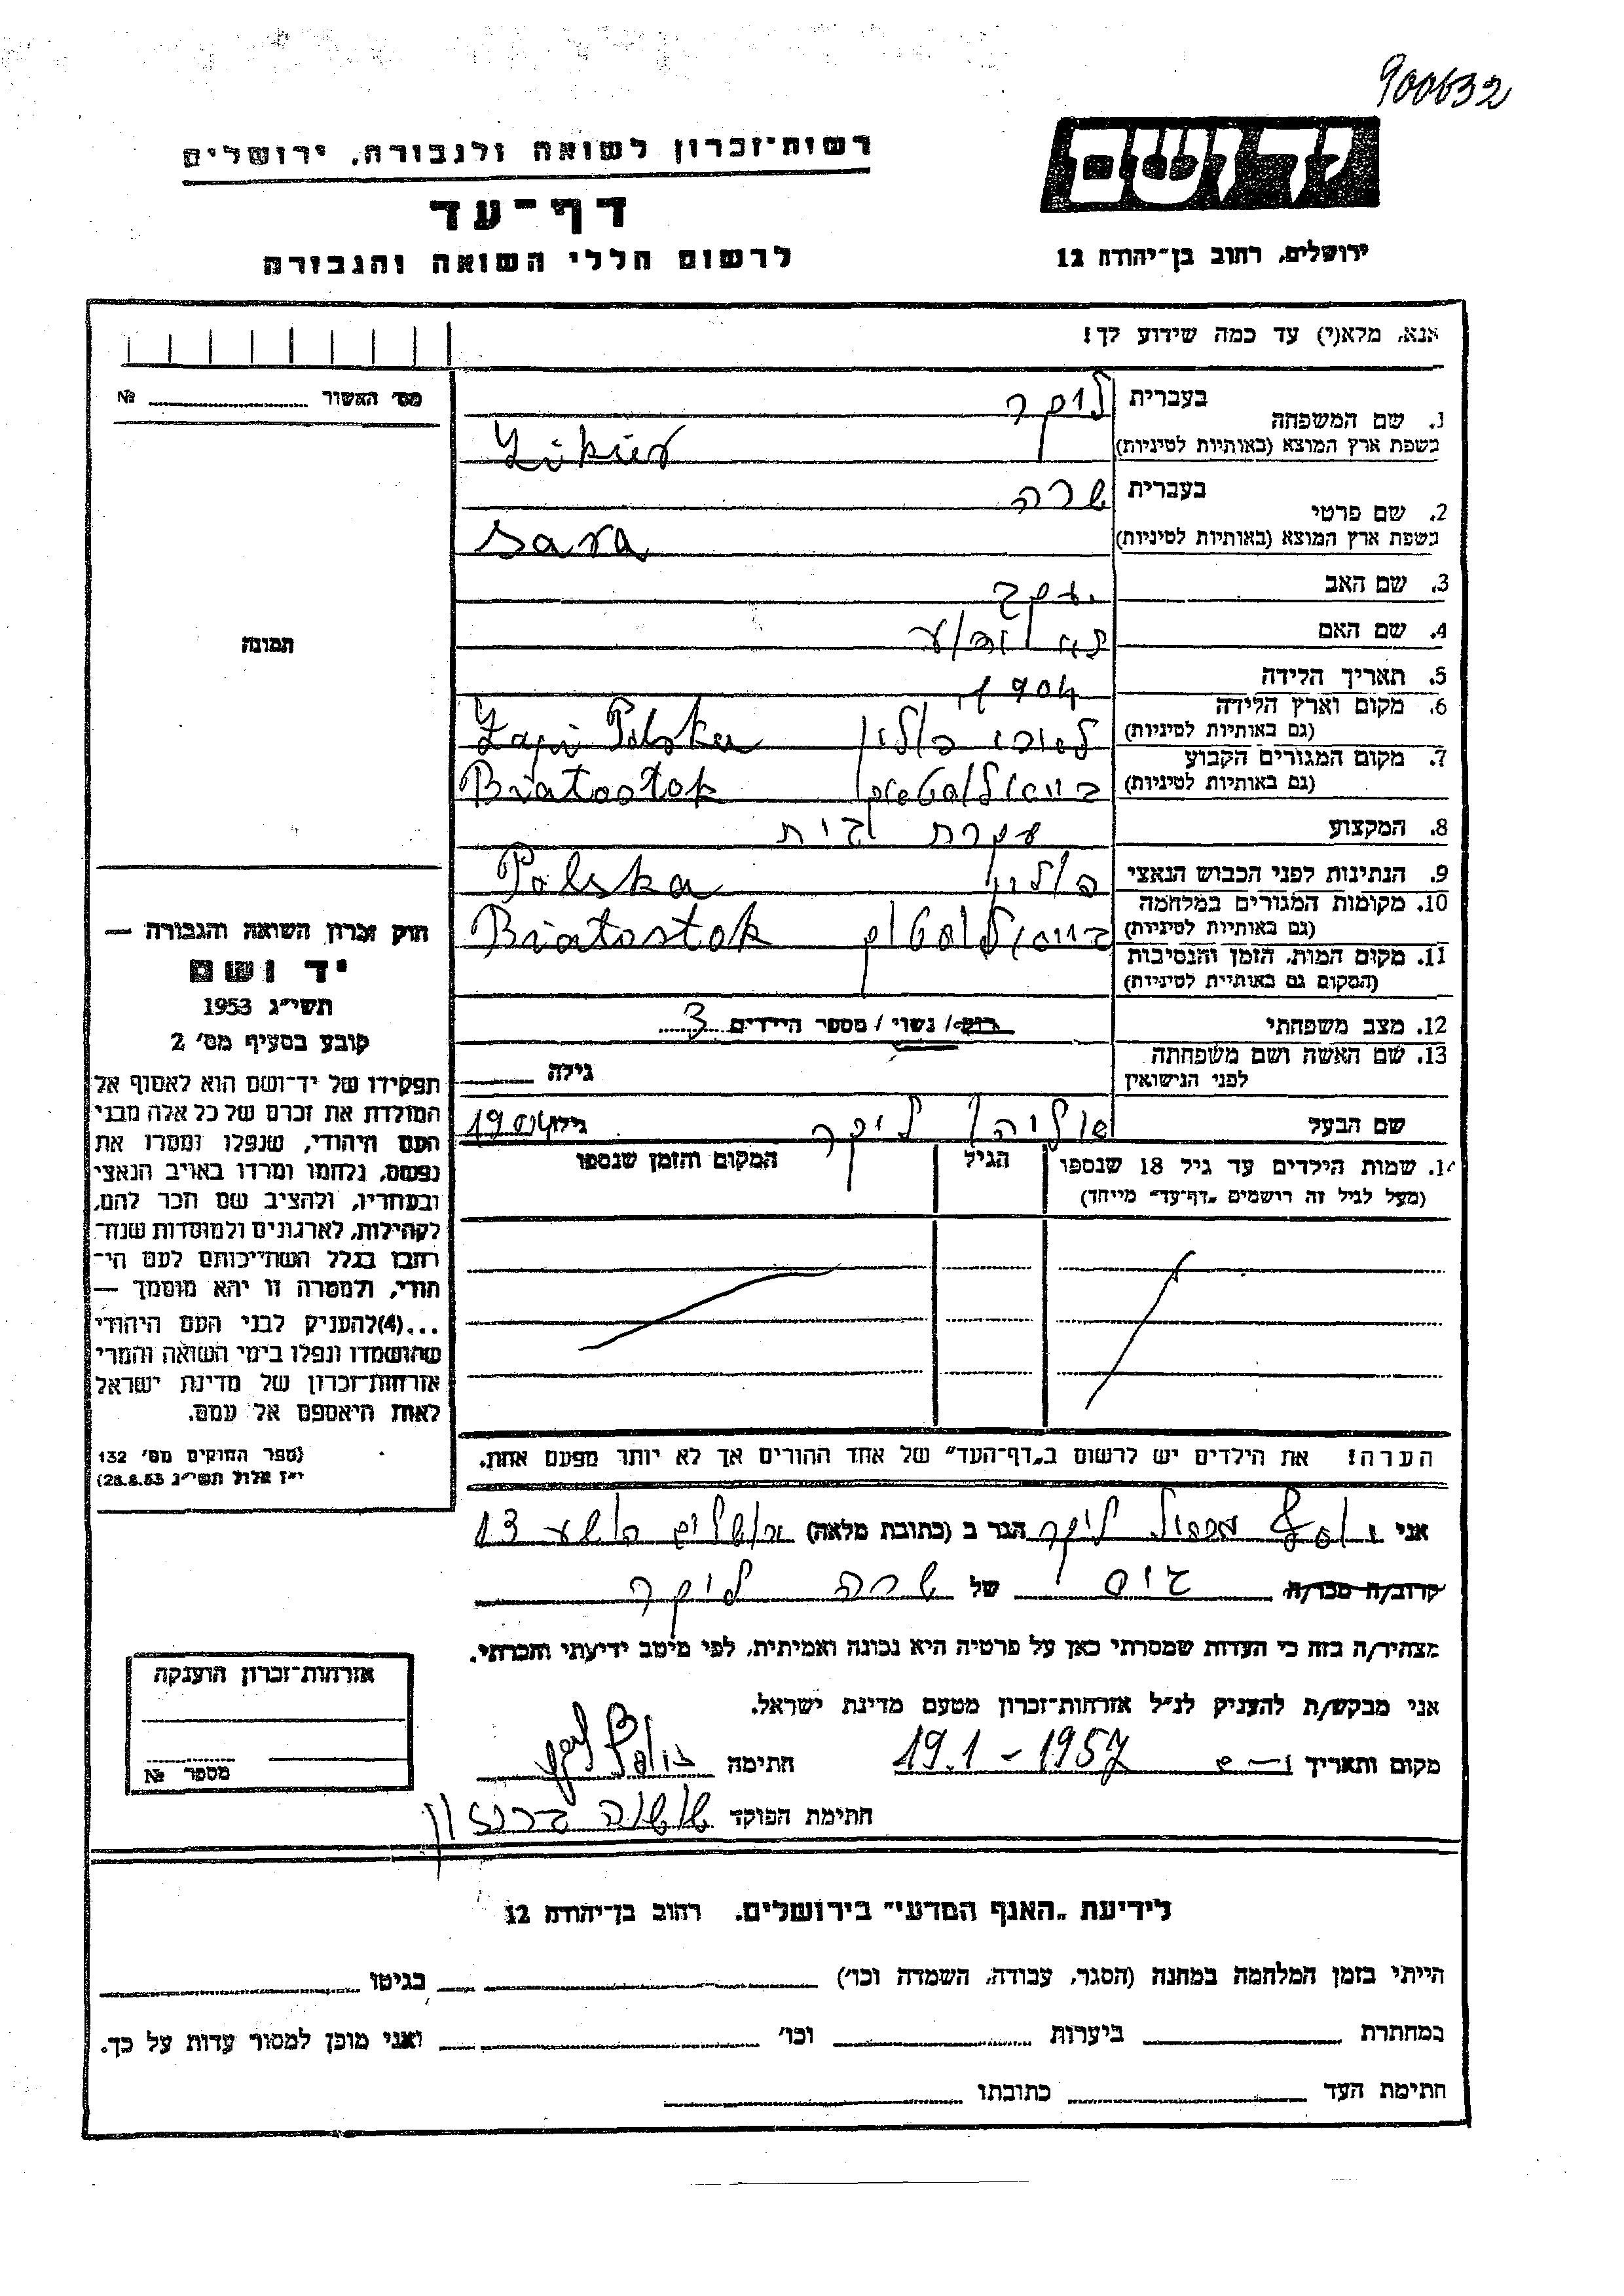 900632
רשות־זכרון לשואה ולגבורה, ירושלים
יד ושם
דף־עד
לרשום חללי השואה והגבורה
ירושלים, רחוב בן־יהודה 12
אנא, מלא(י) עד כמה שידוע לך!
מס׳ האשור № 
1. שם המשפחה
בעברית
בשפת ארץ המוצא (באותיות לטיניות)
2. שם פרטי
בעברית שרה
בשפת ארץ המוצא (באותיות לטיניות) Sara
3. שם האב יעקב
4. שם האם
5. תאריך הלידה 1904
6. מקום וארץ הלידה
(גם באותיות לטיניות) פולין
7. מקום המגורים הקבוע
(גם באותיות לטיניות) Biatostok
8. המקצוע עקרת בית
9. הנתינות לפני הכבוש הנאצי פולין Polska
10. מקומות המגורים במלחמה
(גם באותיות לטיניות) Biatostok
11. מקום המות, הזמן והנסיבות
(המקום גם באותיות לטיניות)
12. מצב משפחתי רוק/ נשוי/ מספר הילדים 3
13. שם האשה ושם משפחתה
לפני הנישואין
גילה
שם הבעל גילו 1904
14. שמות הילדים עד גיל 18 שנספו הגיל המקום והזמן שנספו
(מעל לגיל זה רושמים „דף־עד״ מייחד)
הערה! את הילדים יש לרשום ב„דף־העד״ של אחד ההורים אך לא יותר מפעם אחת.
תמונה
חוק זכרון השואה והגבורה —
יד ושם
תשי״ג 1953
קובע בסעיף מס׳ 2
תפקידו של יד־ושם הוא לאסוף אל
המולדת את זכרם של כל אלה מבני
העם היהודי, שנפלו ומסרו את
נפשם, נלחמו ומרדו באויב הנאצי
ובעוזריו, ולהציב שם וזכר להם,
לקהילות, לארגונים ולמוסדות שנח־
רבו בגלל השתייכותם לעם הי־
הודי, ולמטרה זו יהא מוסמך —
...(4)להעניק לבני העם היהודי
שהושמדו ונפלו בימי השואה והמרי
אזרחות־זכרון של מדינת ישראל
לאות היאספם אל עמם.
(ספר החוקים מס׳ 132
י״ז אלול תשי״ג 28.8.53)
אני הגר ב (כתובת מלאה) 13
קרוב/ה מכר/ה גיס של שרה
מצהיר/ה בזה כי העדות שמסרתי כאן על פרטיה היא נכונה ואמיתית, לפי מיטב ידיעתי והכרתי.
אני מבקש/ת להעניק לנ״ל אזרחות־זכרון מטעם מדינת ישראל.
מקום ותאריך 19.1-1957 חתימה
חתימת הפוקד
אזרחות־זכרון הוענקה
מספר №
לידיעת „האגף המדעי״ בירושלים. רחוב בן־יהודה 12
הייתי בזמן המלחמה במחנה (הסגר, עבודה, השמדה וכו׳) בגיטו
במחתרת ביערות וכו׳ ואני מוכן למסור עדות על כך.
חתימת העד כתובתו